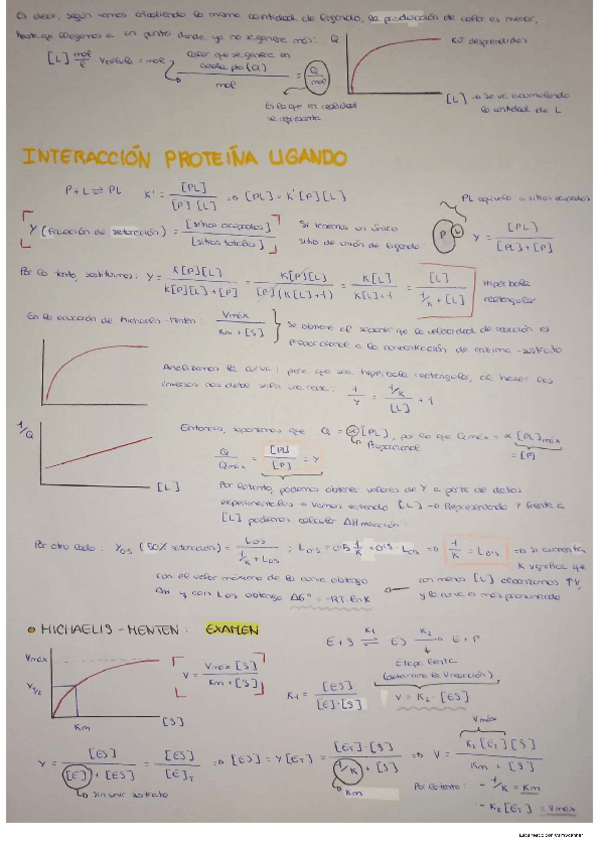 Es decir, según vamos añadiendo la misma cantidad de ligando, la producción de calor es menor,
hasta que llegamos a un punto donde ya no se genera más: Q
[L] mol/l · V = mol
calor que se genera en cada pto (Q) / mol = Q/mol
En lo que en realidad se representa
KJ desprendidos
[L] → se va acumulando la cantidad de L
INTERACCIÓN PROTEÍNA LIGANDO
P + L ⇌ PL K' = [PL] / [P][L] ⇒ [PL] = K'[P][L]
PL equivale a sitios ocupados
Y (fracción de saturación) = [sitios ocupados] / [sitios totales]
Si tenemos un único sitio de unión de ligando: P L Y = [PL] / [PL]+[P]
Por lo tanto, sustituimos: Y = K[P][L] / K[P][L]+[P] = K[P][L] / [P](K[L]+1) = K[L] / K[L]+1 = [L] / 1/K + [L] Hipérbola rectangular
En la ecuación de Michaelis-Menten: Vmáx / Km + [S] } Se obtiene al suponer que la velocidad de reacción es
proporcional a la concentración de enzima-sustrato
Analizamos la curva: para que sea hipérbola rectangular, al hacer los
inversos nos debe salir una recta: 1/Y = 1/K / [L] + 1
1/Q
[L]
Entonces, suponemos que Q = α[PL], por lo que Qmáx = α[PL]máx
Proporcional
= [P]
Q / Qmáx = [PL] / [P] = Y
Por lo tanto, podemos obtener valores de Y a partir de datos
experimentales → vamos variando [L] → Representando Y frente a
[L] podemos calcular ΔH reacción.
Por otro lado: Y0.5 (50% saturación) = L0.5 / 1/K + L0.5 ; L0.5 = 0.5 1/K + 0.5 · L0.5 ⇒ 1/K = L0.5 ⇒ si aumenta
K significa que
con menos [L] alcanzamos ↑Y,
y la curva es más pronunciada
con el valor máximo de la curva obtengo
ΔH y con L0.5 obtengo ΔG° = -RT·lnK
MICHAELIS-MENTEN: EXAMEN
Vmáx
V1/2
Km
[S]
V = Vmáx [S] / Km + [S]
E + S ⇌ ES → E + P
K1
K2
Etapa lenta
(determina la Vreacción)
K1 = [ES] / [E]·[S]
V = K2 · [ES]
Y = [ES] / [E] + [ES] = [ES] / [E]T ⇒ [ES] = Y[ET] = [ET]·[S] / 1/K + [S] ⇒ V = K2[ET][S] / Km + [S]
Vmáx
Sin unir sustrato
Km
Por lo tanto: - 1/K = Km
- K2[ET] = Vmáx